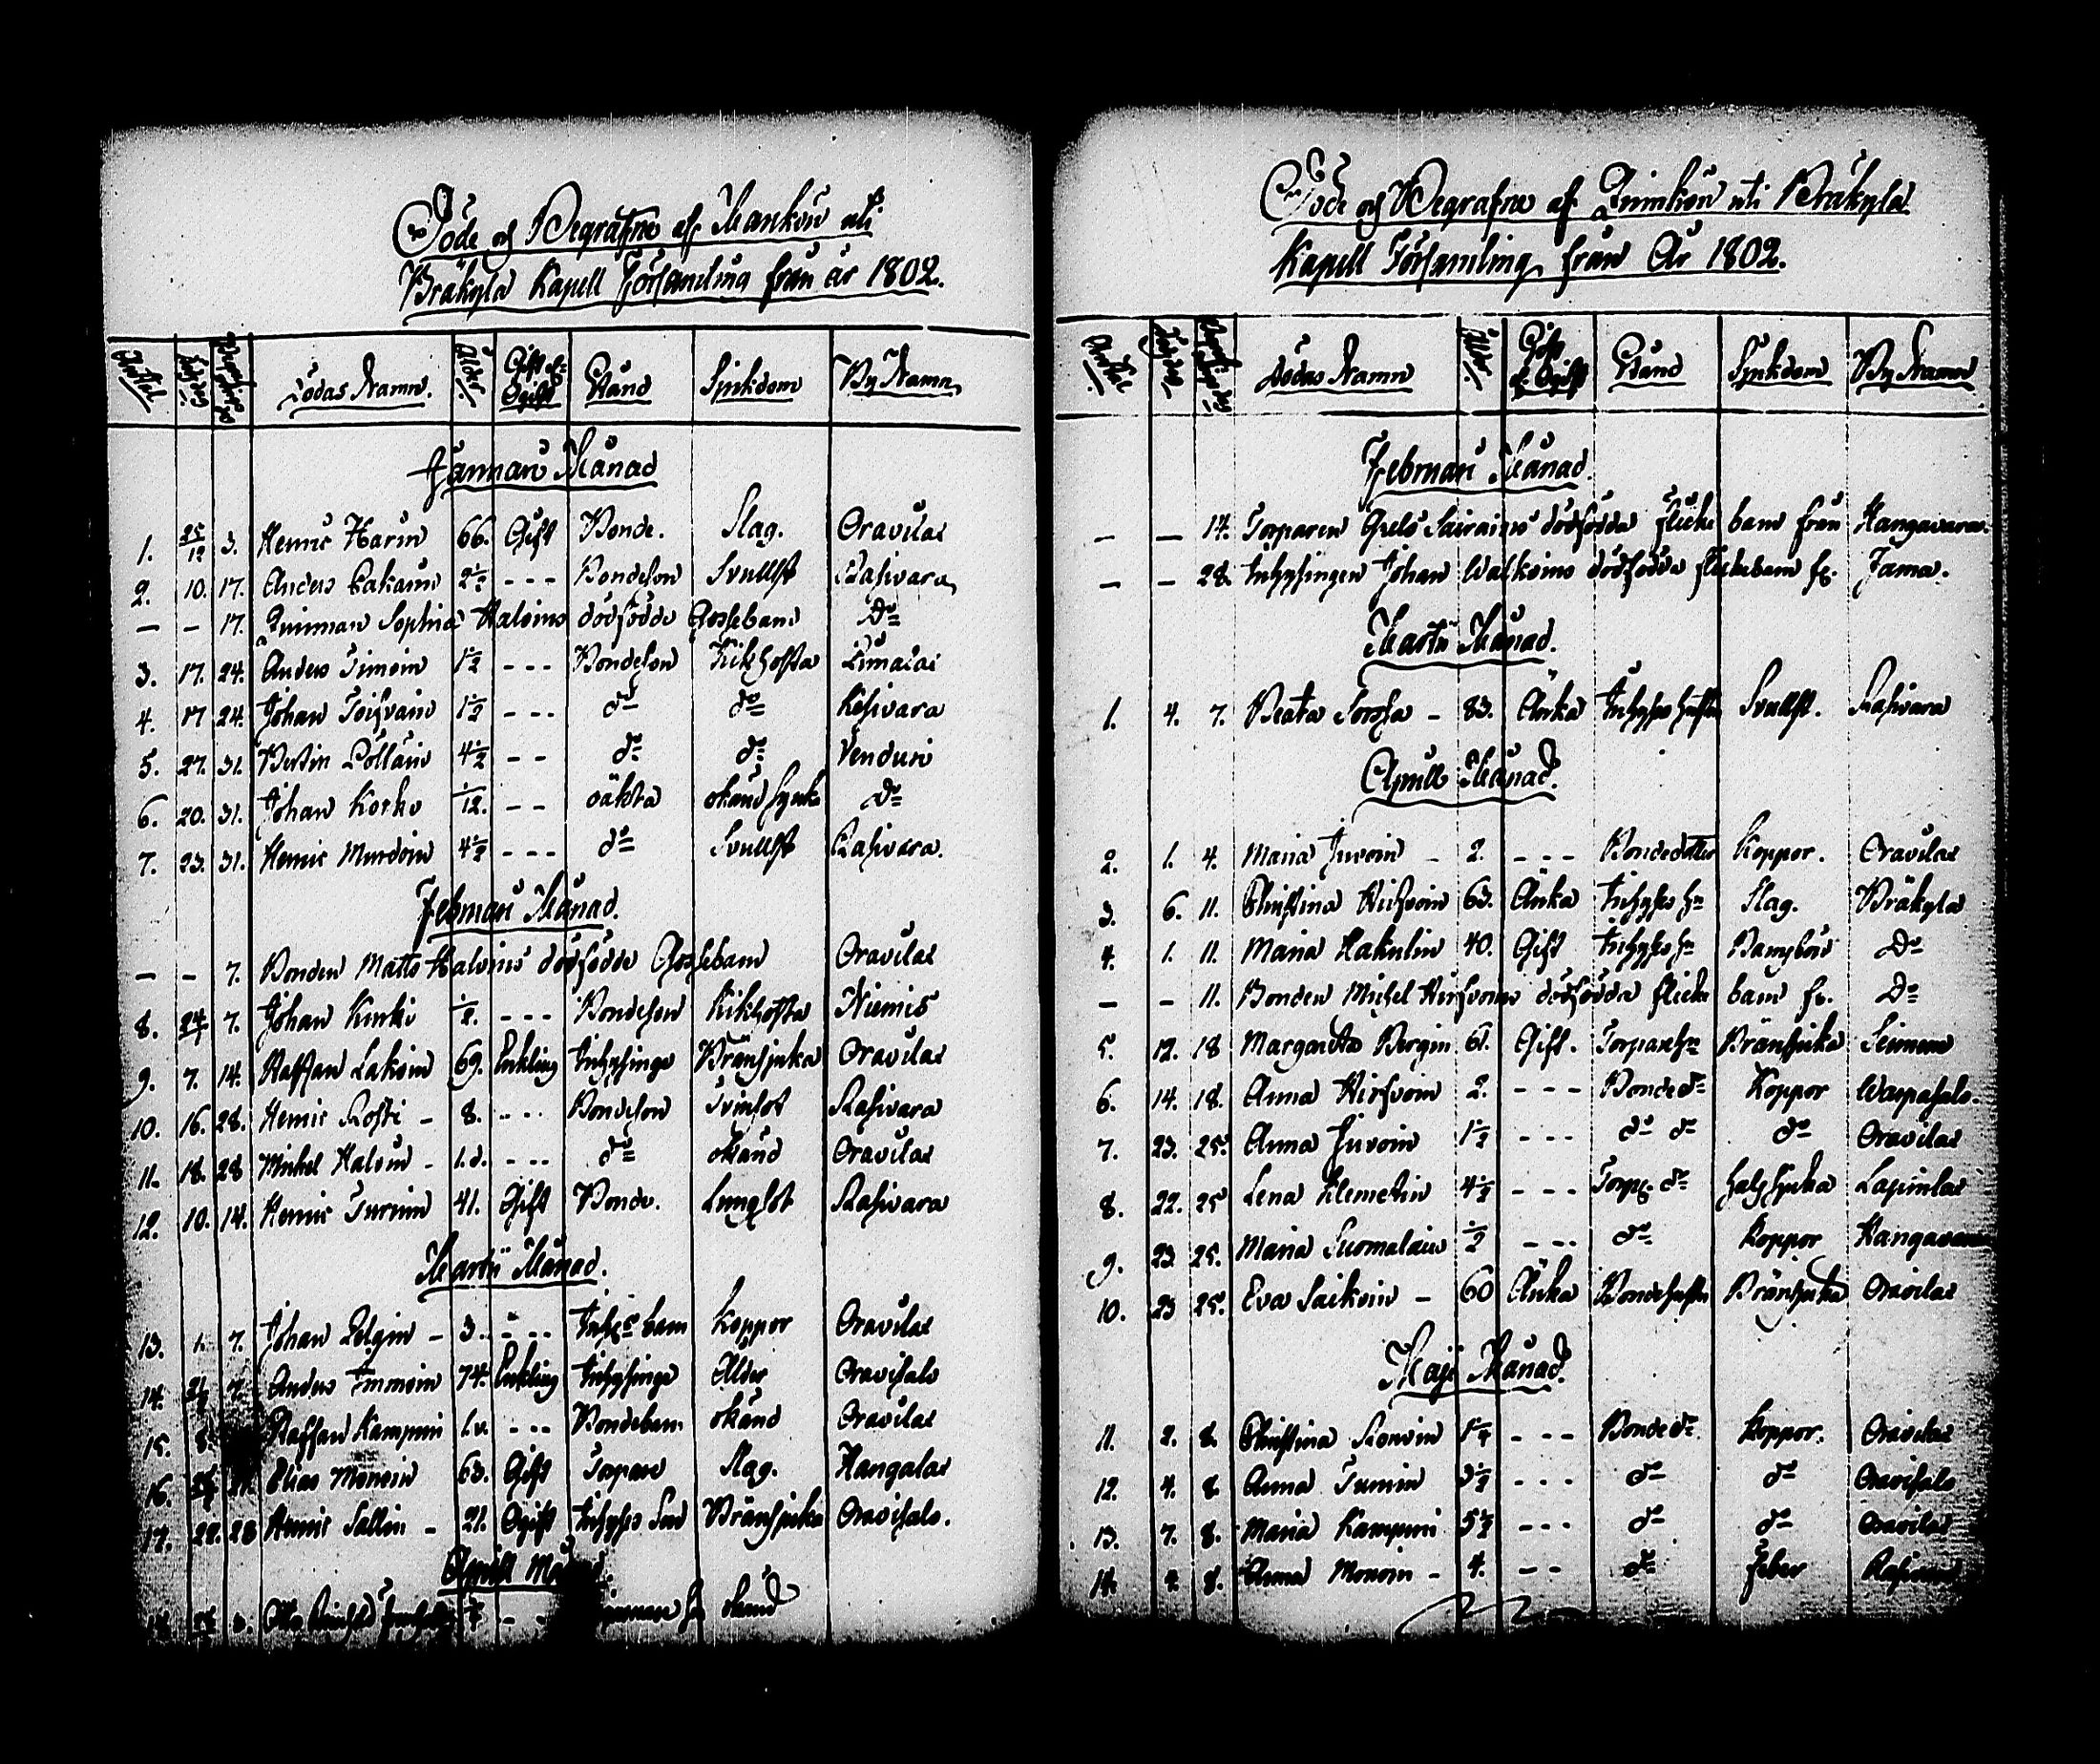 Döde och Begrafne af Mankön uti
Bräkylä Kapell Församling från år 1802.
Antal Dödsdag Begrafnings dag Dödas Namn. Ålder. Gift el. Ogift Stånd Sjukdom By Namn
Januari Månad
1. 25/12 3. Henric Harin 66. Gift Bonde. Slag. Oravilax
2. 10. 17. Anders Cakain 2 1/2 - - - Bondeson Svullst Rasivara
— — 17. Qvinnan Sophia Halvins dödfödde Gossebarn Do
3. 17. 24. Anders Simoin 1 1/2 - - - Bondeson Kikhosta Limalax
4. 17 24. Johan Toifvain 1 1/2 - - - do do Kesivara
5. 27. 31. Bertin Pöllain 4 1/2 - - do do Venduri
6. 20. 31. Johan Korko 1/12. - - oäkta okänd sjuk. Do
7. 23. 31. Henric Murdoin 4 1/2 - - - do Svullst Rasivara.
Februari Månad.
— — 7. Bonden Matts Halvins dödfödde Gossebarn Oravilax
8. 24/1 7. Johan Kurki 1/2. - - - Bondeson Kikhosta Niemis
9. 7. 14. Staffan Lakoin 69. Enkling Inhysinge Bränsjuka Oravilax
10. 16. 28. Henric Rosti - 8. - - - Bondeson Tvinsot Rasivara
11. 18. 28 Michel Halvin - 1. d. - - - do okänd Oravilax
12. 10. 14. Henric Turuin 41. Gift Bonde. Lungsot Rasivara
Martii Månad.
13. 1. 7. Johan Pelgin - 3. - - - Inhys barn Koppor Oravilax
14. 7. Anders Immoin 74. Enkling Inhysinge Ålder Oravisalo
15. 8. Staffan Kampuri 1. v. - - - Bondebarn okänd Oravilax
16. Elias Monoin 63. Gift Torpare Slag. Hangalax
17. 22. 28 Henric Sallin - 21. Ogift Inhyses Son Bränsjuka Oravisalo.
Aprill Månad.
3. okänd
Döde och Begrafne af Qvinkön uti Bräkylä
Kapell Församling från År 1802.
Antal. Dödsdag Begrafnings dag Dödas Namn Ålder. Gift el. Ogift Stånd Sjukdom By Namn
Februari Månad.
— — 14. Torparen Axels Sairains dödfödda flicke barn från Hangavara.
— — 28. Inhysingen Johan Walkoins dödfödda flickebarn fr. Jama.
Martii Månad.
1. 4. 7. Beata Sorsa - 83. Änka Inhyses hustru Svullst. Rasivara
Aprill Månad.
2. 1. 4. Maria Juvoin - 2. - - - Bondedotter Koppor. Oravilax
3. 6. 11. Christina Hirfvoin 63. Änka Inhyses hu Slag. Bräkylä
4. 1. 11. Maria Hakulin 40. Gift Inhyses hu Barnsbörd Do
— — 11. Bonden Michel Hirfvoins dödfödda flicke barn fr. Do
5. 12. 18 Margareta Bergin 61. Gift. Torpare hu Bränsjuka
6. 14. 18. Anna Hirfvoin 2. - - - Bonde dr Koppor Warpasalo.
7. 23. 25. Anna Juvoin 1 1/2 - - - do do do Oravilax
8. 22. 25 Lena Klemetin 4 1/2 - - - Torp. dr Halssjuka Lapinlax
9. 23 25. Maria Suomalain 1/2 - - - do Koppor Hangavara
10. 23 25. Eva Saikoin - 60 Änka Bondehustru Bränsjuka Oravilax
Maji Månad.
11. 2. 8. Christina Rouvin 1 1/4 - - - Bonde dr. Koppor. Oravilax
12. 4. 8. Anna Turuin 3 1/2 - - - do do Oravisalo
13. 7. 8. Maria Kampuri - - - do do Oravilax
14. 4. 8. Anna Monoin - 4. - - do feber Rasivara